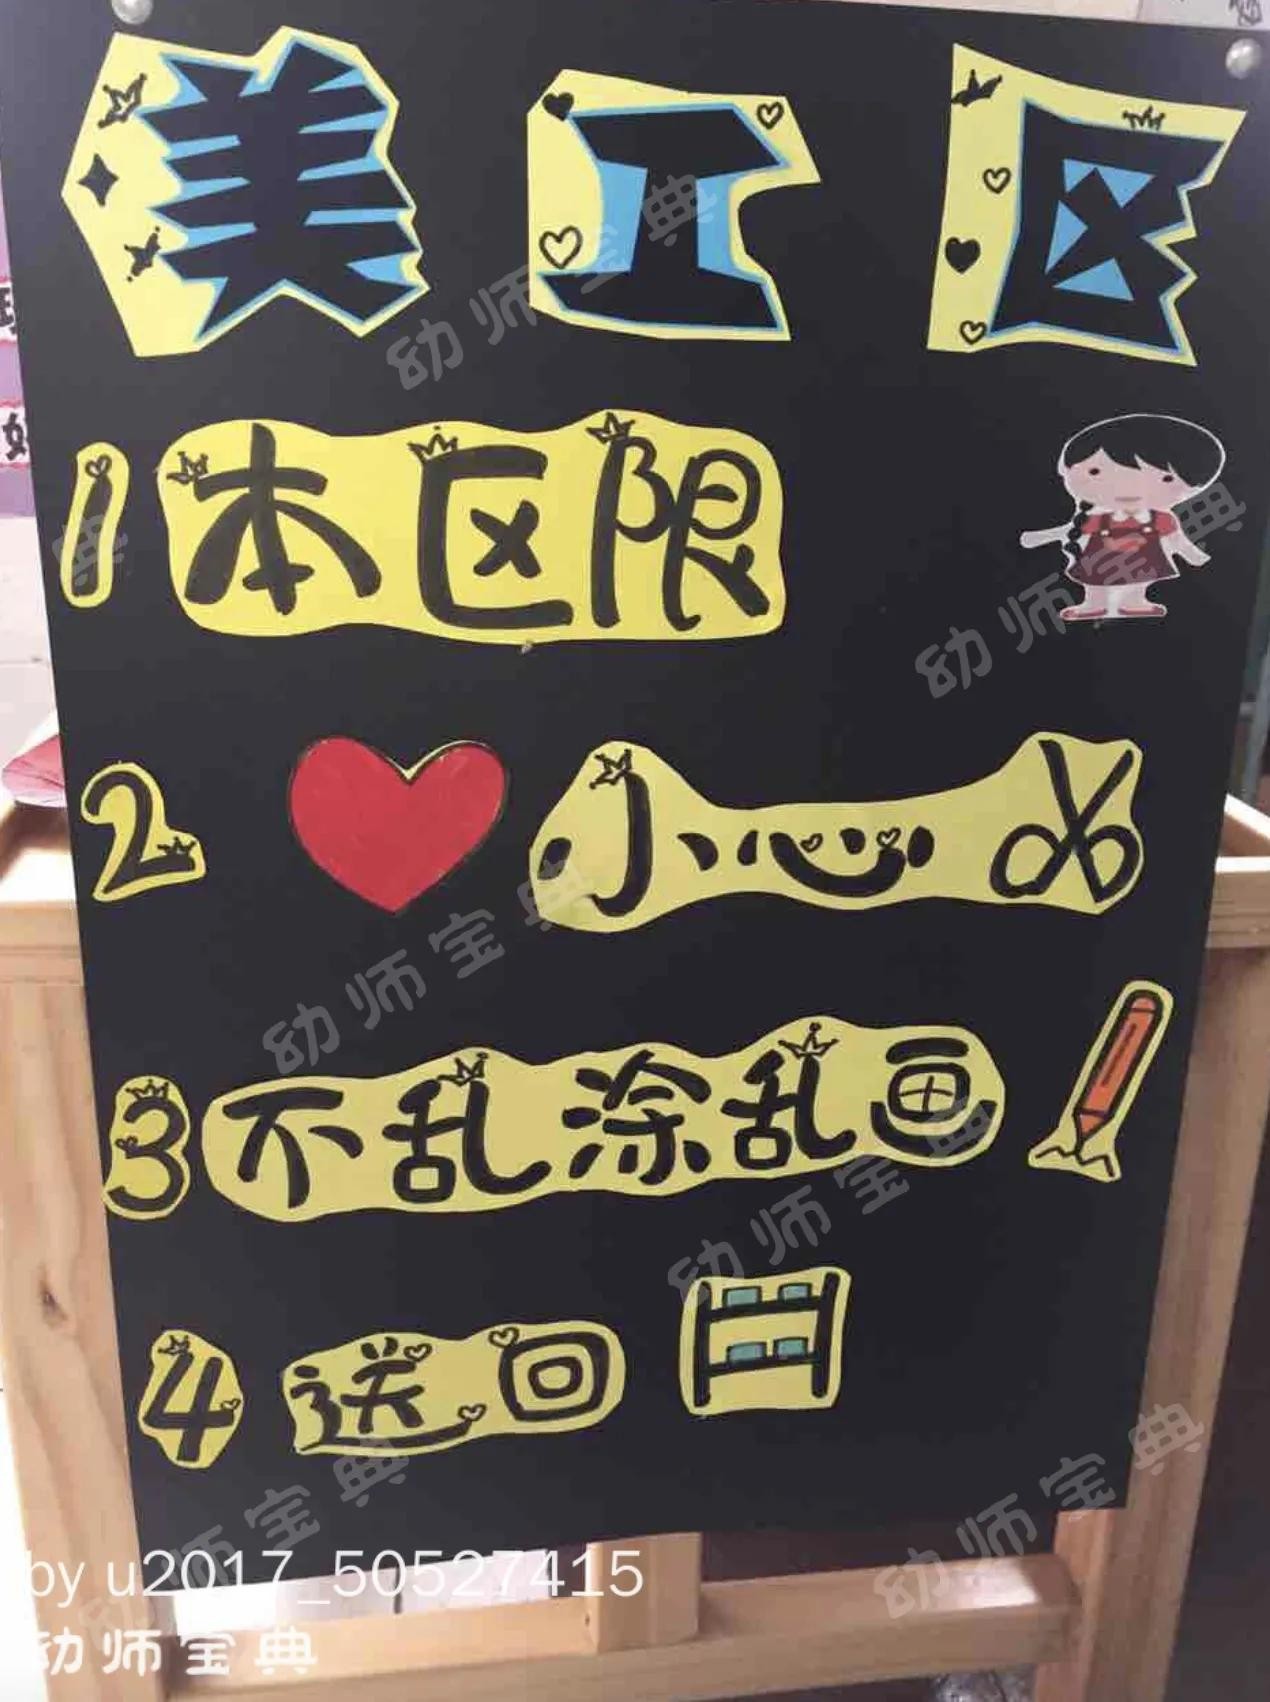 美工区
1 本区限
2 小心
3 不乱涂乱画
4 送回
by u2017_50527415
幼师宝典